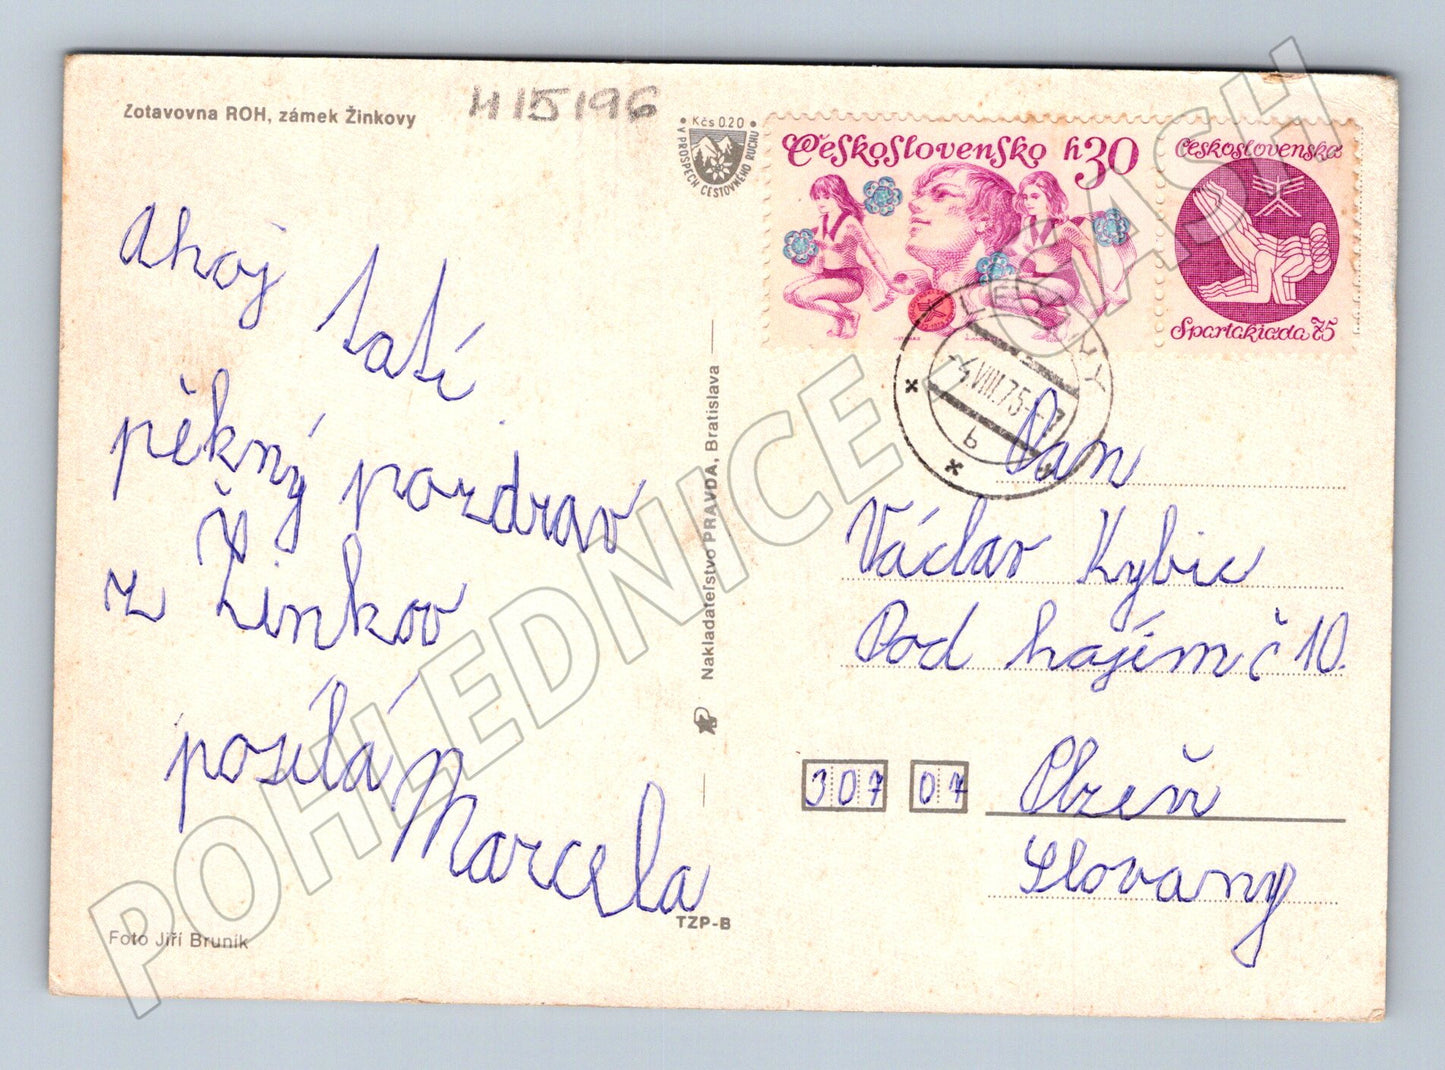 Zotavovna ROH, zámek Žinkovy
H15196
Kčs 0.20
V PROSPĚCH CESTOVNÉHO RUCHU
Československo h30
Československo
Spartakiada 75
-4.VIII.75-7
b
Ahoj tatí
pěkný pozdrav
z Žinkov
posílá
Marcela
Foto Jiří Bruník
TZP-B
Nakladateľstvo PRAVDA, Bratislava
Pan
Václav Kybic
Pod hájem č 10.
307 07 Plzeň
Slovany
POHLEDNICE.CASH